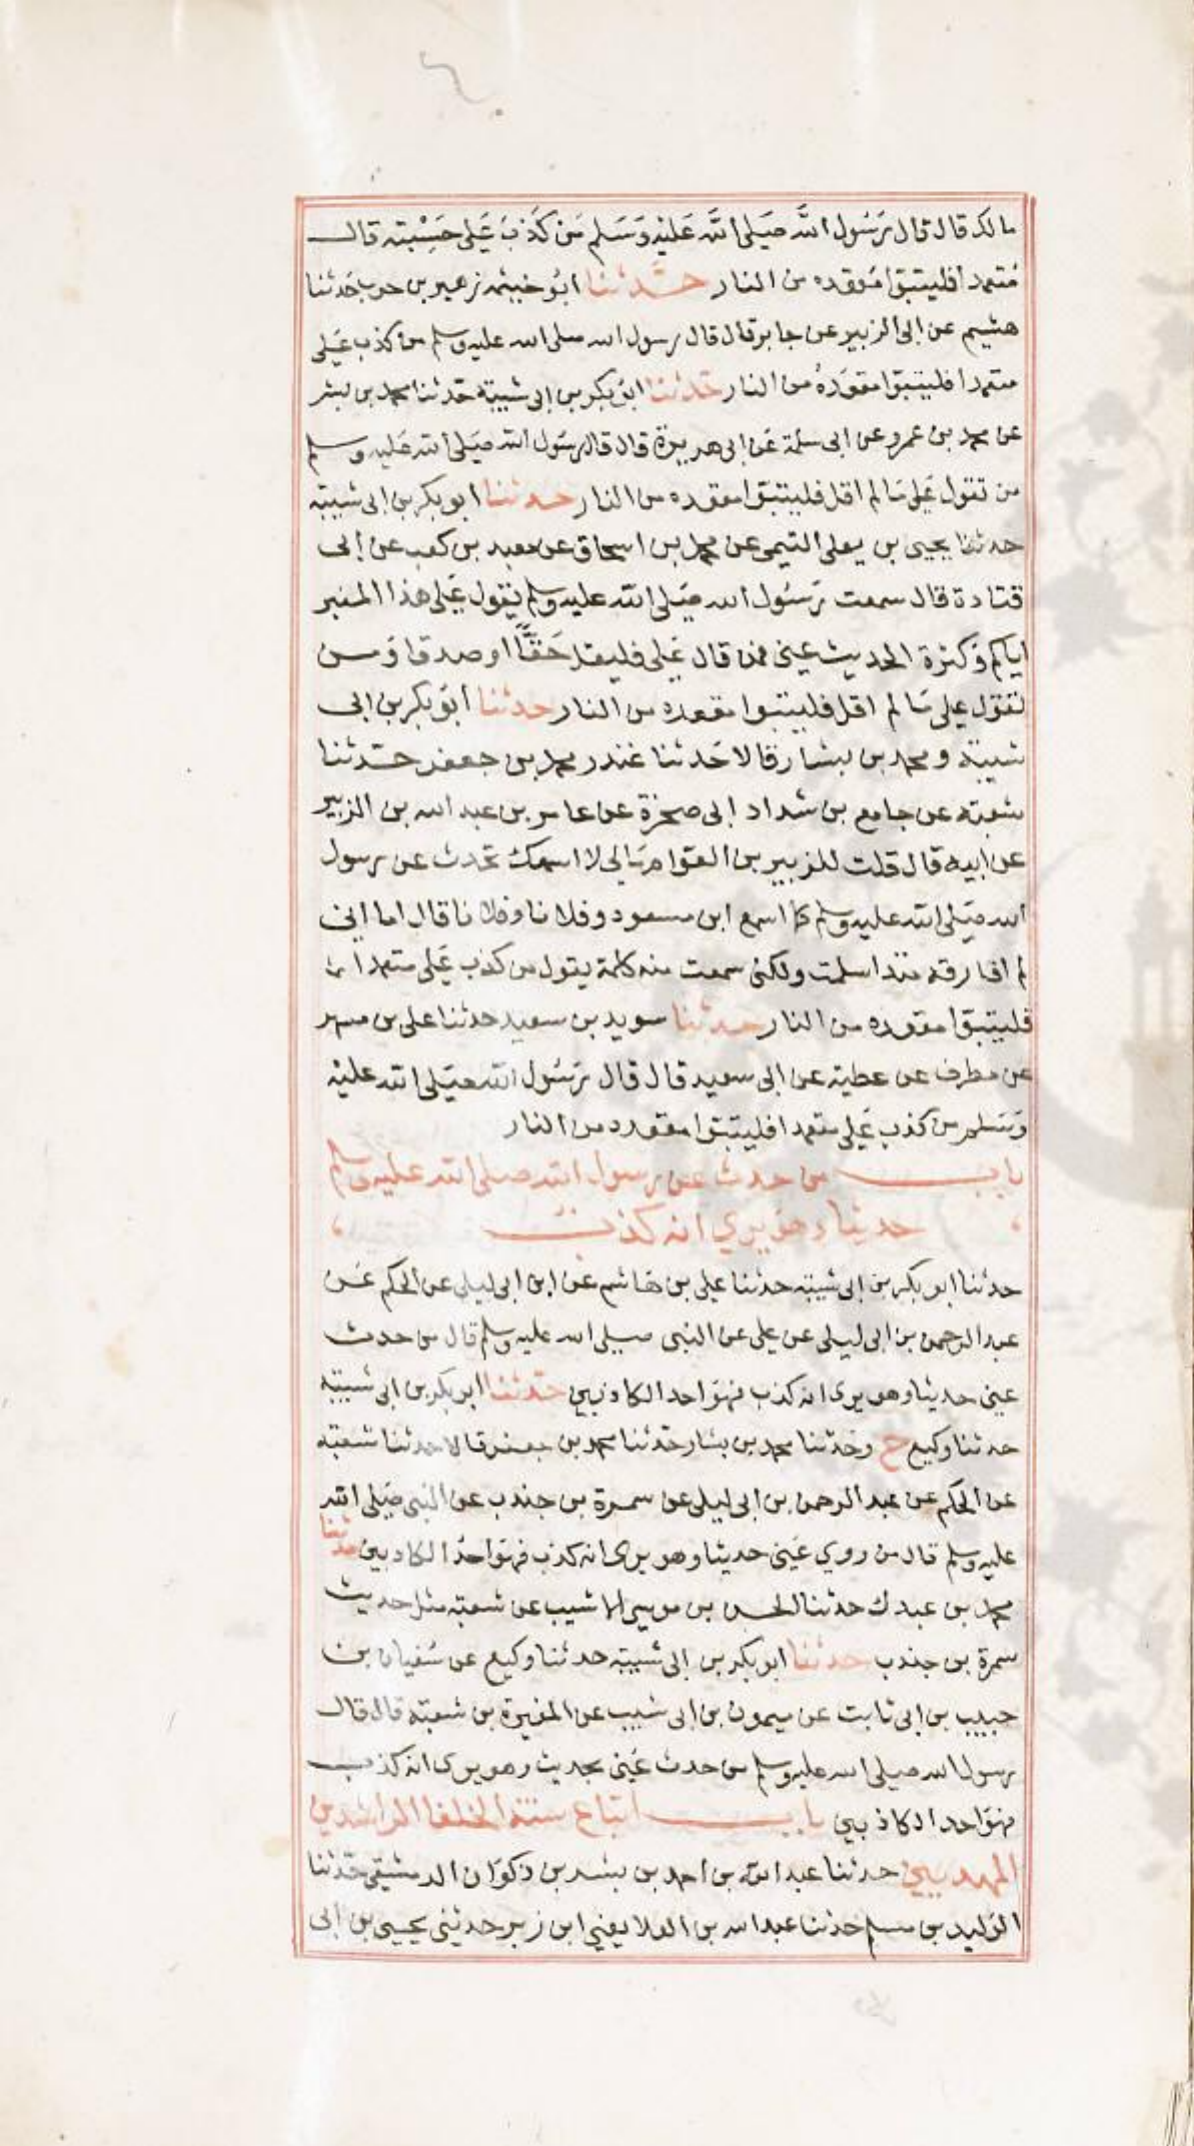 مالك قال قال رسول الله صلى الله عليه وسلم من كذب علي حسبته قال
متعمدا فليتبوا مقعده من النار حدثنا ابو خيثمه زهير بن حرب حدثنا
هشيم عن ابى الزبير عن جابر قال قال رسول الله صلى الله عليه وسلم من كذب على
متعمدا فليتبوا مقعده من النار حدثنا ابو بكر بن ابى شيبة حدثنا محمد بن بشر
عن محمد بن عمرو عن ابى سلمة عن ابى هريرة قال قال رسول الله صلى الله عليه وسلم
من تقول علي ما لم اقل فليتبوا مقعده من النار حدثنا ابو بكر بن ابى شيبة
حدثنا يحيى بن يعلى التيمى عن محمد بن اسحاق عن معبد بن كعب عن ابى
قتادة قال سمعت رسول الله صلى الله عليه وسلم يقول على هذا المنبر
اياكم وكثرة الحديث عنى فمن قال على فليقل حقا او صدقا ومن
تقول على ما لم اقل فليتبوا مقعده من النار حدثنا ابو بكر بن ابى
شيبة ومحمد بن بشار قالا حدثنا غندر محمد بن جعفر حدثنا
شعبة عن جامع بن شداد ابى صخرة عن عامر بن عبد الله بن الزبير
عن ابيه قال قلت للزبير بن العوام مالى لا اسمعك تحدث عن رسول
الله صلى الله عليه وسلم كما اسمع ابن مسعود وفلانا وفلانا قال اما انى
لم افارقه منذ اسلمت ولكنى سمعت منه كلمة يقول من كذب على متعمدا
فليتبوا مقعده من النار حدثنا سويد بن سعيد حدثنا على بن مسهر
عن مطرف عن عطية عن ابى سعيد قال قال رسول الله صلى الله عليه
وسلم من كذب علي متعمدا فليتبوا مقعده من النار
باب من حدث عن رسول الله صلى الله عليه وسلم
حديثا وهو يري انه كذب
حدثنا ابو بكر بن ابى شيبة حدثنا على بن هاشم عن ابن ابى ليلى عن الحكم عن
عبد الرحمن بن ابى ليلى عن على عن النبى صلى الله عليه وسلم قال من حدث
عنى حديثا وهو يرى انه كذب فهو احد الكاذبين حدثنا ابو بكر بن ابى شيبة
حدثنا وكيع ح وحدثنا محمد بن بشار حدثنا محمد بن جعفر قالا حدثنا شعبة
عن الحكم عن عبد الرحمن بن ابى ليلى عن سمرة بن جندب عن النبى صلى الله
عليه وسلم قال من روي عني حديثا وهو يرى انه كذب فهو احد الكاذبين حدثنا
محمد بن عبدك حدثنا الحسن بن موسى الاشيب عن شعبة مثل حديث
سمرة بن جندب حدثنا ابو بكر بن ابى شيبة حدثنا وكيع عن سفيان بن
حبيب بن ابى ثابت عن ميمون بن ابى شبيب عن المغيرة بن شعبة قال قال
رسول الله صلى الله عليه وسلم من حدث عنى بحديث وهو يرى انه كذب
فهو احد الكاذبين باب اتباع سنة الخلفا الراشدين
المهديين حدثنا عبد الله بن احمد بن بشير بن ذكوان الدمشقى حدثنا
الوليد بن مسلم حدثنا عبد الله بن العلا يعني ابن زبر حدثنى يحيى بن ابى